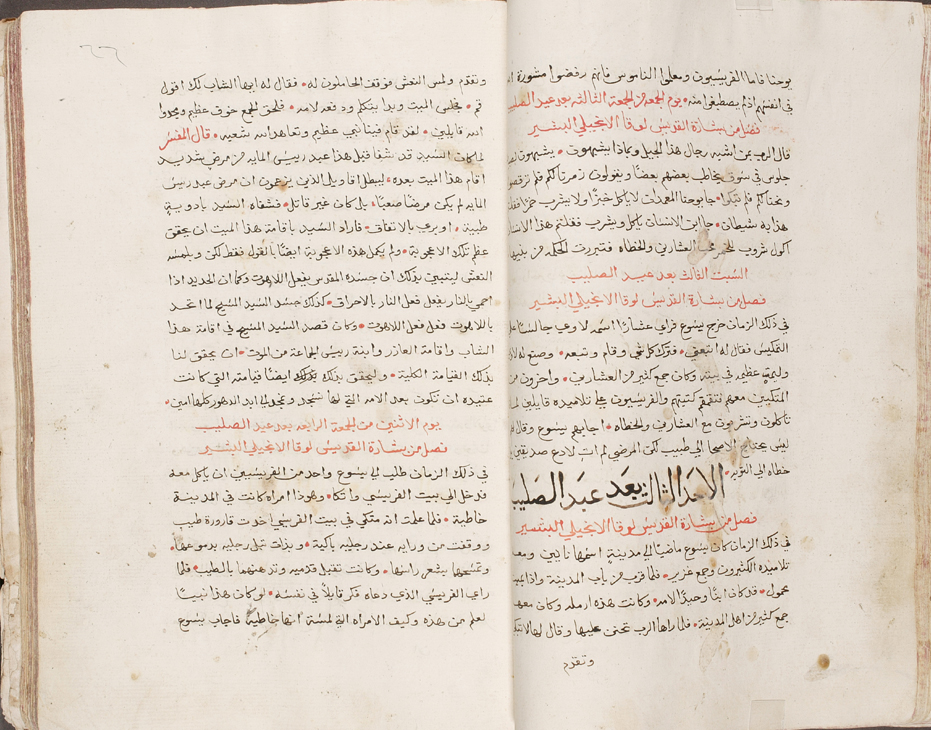 يوحنا فاما الفريسيون ومعلموا الناموس فانهم رفضوا مشورة
في انفسهم اذ لم يصطبغوا منه • يوم الجمعه من الجمعة الثالثه بعد عيد الصليب
فصل من بشارة القديس لوقا الانجيلي البشير
قال الرب بمن اشبه رجال هذا الجيل وبماذا يشبهون • يشبهون
جلوس في سوق يخاطب بعضهم بعضًا ويقولون زمرنا لكم فلم ترقصوا
ونحنا لكم فلم تبكوا • جا يوحنا المعمدان لا ياكل خبزًا ولا يشرب خمرًا
هذا به شيطان • جا ابن الانسان ياكل ويشرب فقلتم هذا الانسان
اكول شروب للخمر محب العشارين والخطاه • فتبررت الحكمه من بنيها
السبت الثالث بعد عيد الصليب
فصل من بشارة القديس لوقا الانجيلي البشير
في ذلك الزمان خرج يسوع فراي عشارًا اسمه لاوي جالسًا على
التمكيس فقال له اتبعني • فترك كل شي وقام وتبعه • وصنع له لاوي
وليمه عظيمه في بيته وكان جمع كثير من العشارين • واخرون
المتكيين معهم فتقمقم كتبتهم والفريسيون على تلاميذه قايلين
تاكلون وتشربون مع العشارين والخطاه • اجابهم يسوع وقال
ليس يحتاج الاصحا الي طبيب لكن المرضي لم ات لادعو صديقين
خطاه الي التوبه •
الاحد الثالث بعد عيد الصليب
فصل من بشارة القديس لوقا الانجيلي البشير
في ذلك الزمان كان يسوع ماضيًا الي مدينةٍ اسمها نايين ومعه
تلاميذه الكثيرون وجمع غزير • فلما قرب من باب المدينة واذا
محمول • قد كان ابنًا وحيدًا لامه • وكانت هذه ارمله وكان معها
جمع كثير من اهل المدينة • فلما راها الرب تحنن عليها وقال لها لا تبكي
وتقدم
٢٢٦
وتقدم ولمس النعش فوقف الحاملون له • فقال له ايها الشاب لك اقول
قم • فجلس الميت وبدا يتكلم ودفعه لامه • فلحق الجمع خوف عظيم ومجدوا
الله قايلين • لقد قام فينا نبي عظيم وتعاهد الله شعبه • قال المفسر
لما كان السيد قد شفا قبل هذا عبد رييس المايه من مرض شديد
اقام هذا الميت بعده • ليبطل اقاويل الذين يزعمون ان مرض عبد رييس
المايه لم يكن مرضًا صعبًا • بل كان غير قاتل • فشفاه السيد بادوية
طبية • او بري بالاتفاق • فاراد السيد باقامة هذا الميت ان يحقق
عظم تلك الاعجوبة • ولم يكمل هذه الاعجوبة ايضًا بالقول فقط لكن وبلمسه
النعش ليتبين بذلك ان جسده المقدس يفعل اللاهوت وكما ان الحديد اذا
احمي بالنار يفعل فعل النار بالاحراق • كذلك جسد السيد المسيح لما اتحد
باللاهوت فعل فعل اللاهوت • وكان قصد السيد المسيح في اقامة هذا
الشاب واقامة العازر وابنة رييس الجماعة من الموت • ان يحقق لنا
بذلك القيامة الكلية • وليحقق بذلك ايضًا قيامته التي كانت
عتيده ان تكون بعد الامه التي لها نسجد ونمجد الي ابد الدهور كلها امين •
يوم الاثنين من الجمعة الرابعه بعد عيد الصليب
فصل من بشارة القديس لوقا الانجيلي البشير
في ذلك الزمان طلب الي يسوع واحد من الفريسيين ان ياكل معه
فدخل الي بيت الفريسي واتكا • وهوذا امراه كانت في المدينة
خاطية • فلما علمت انه متكي في بيت الفريسي اخذت قارورة طيب
ووقفت من ورايه عند رجليه باكية • وبدات تبل رجليه بدموعها •
وتمسحها بشعر راسها • وكانت تقبل قدميه وتدهنهما بالطيب • فلما
راي الفريسي الذي دعاه فكر قايلًا في نفسه • لو كان هذا نبيًا
لعلم من هذه وكيف الامراه التي لمسته انها خاطية • فاجاب يسوع